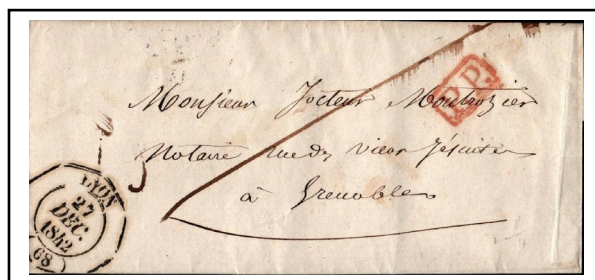 P.P.
Monsieur Jocteur Montrozier
Notaire rue des vieux Jésuites
à Grenoble
LYON
27
DEC.
1842
(68)